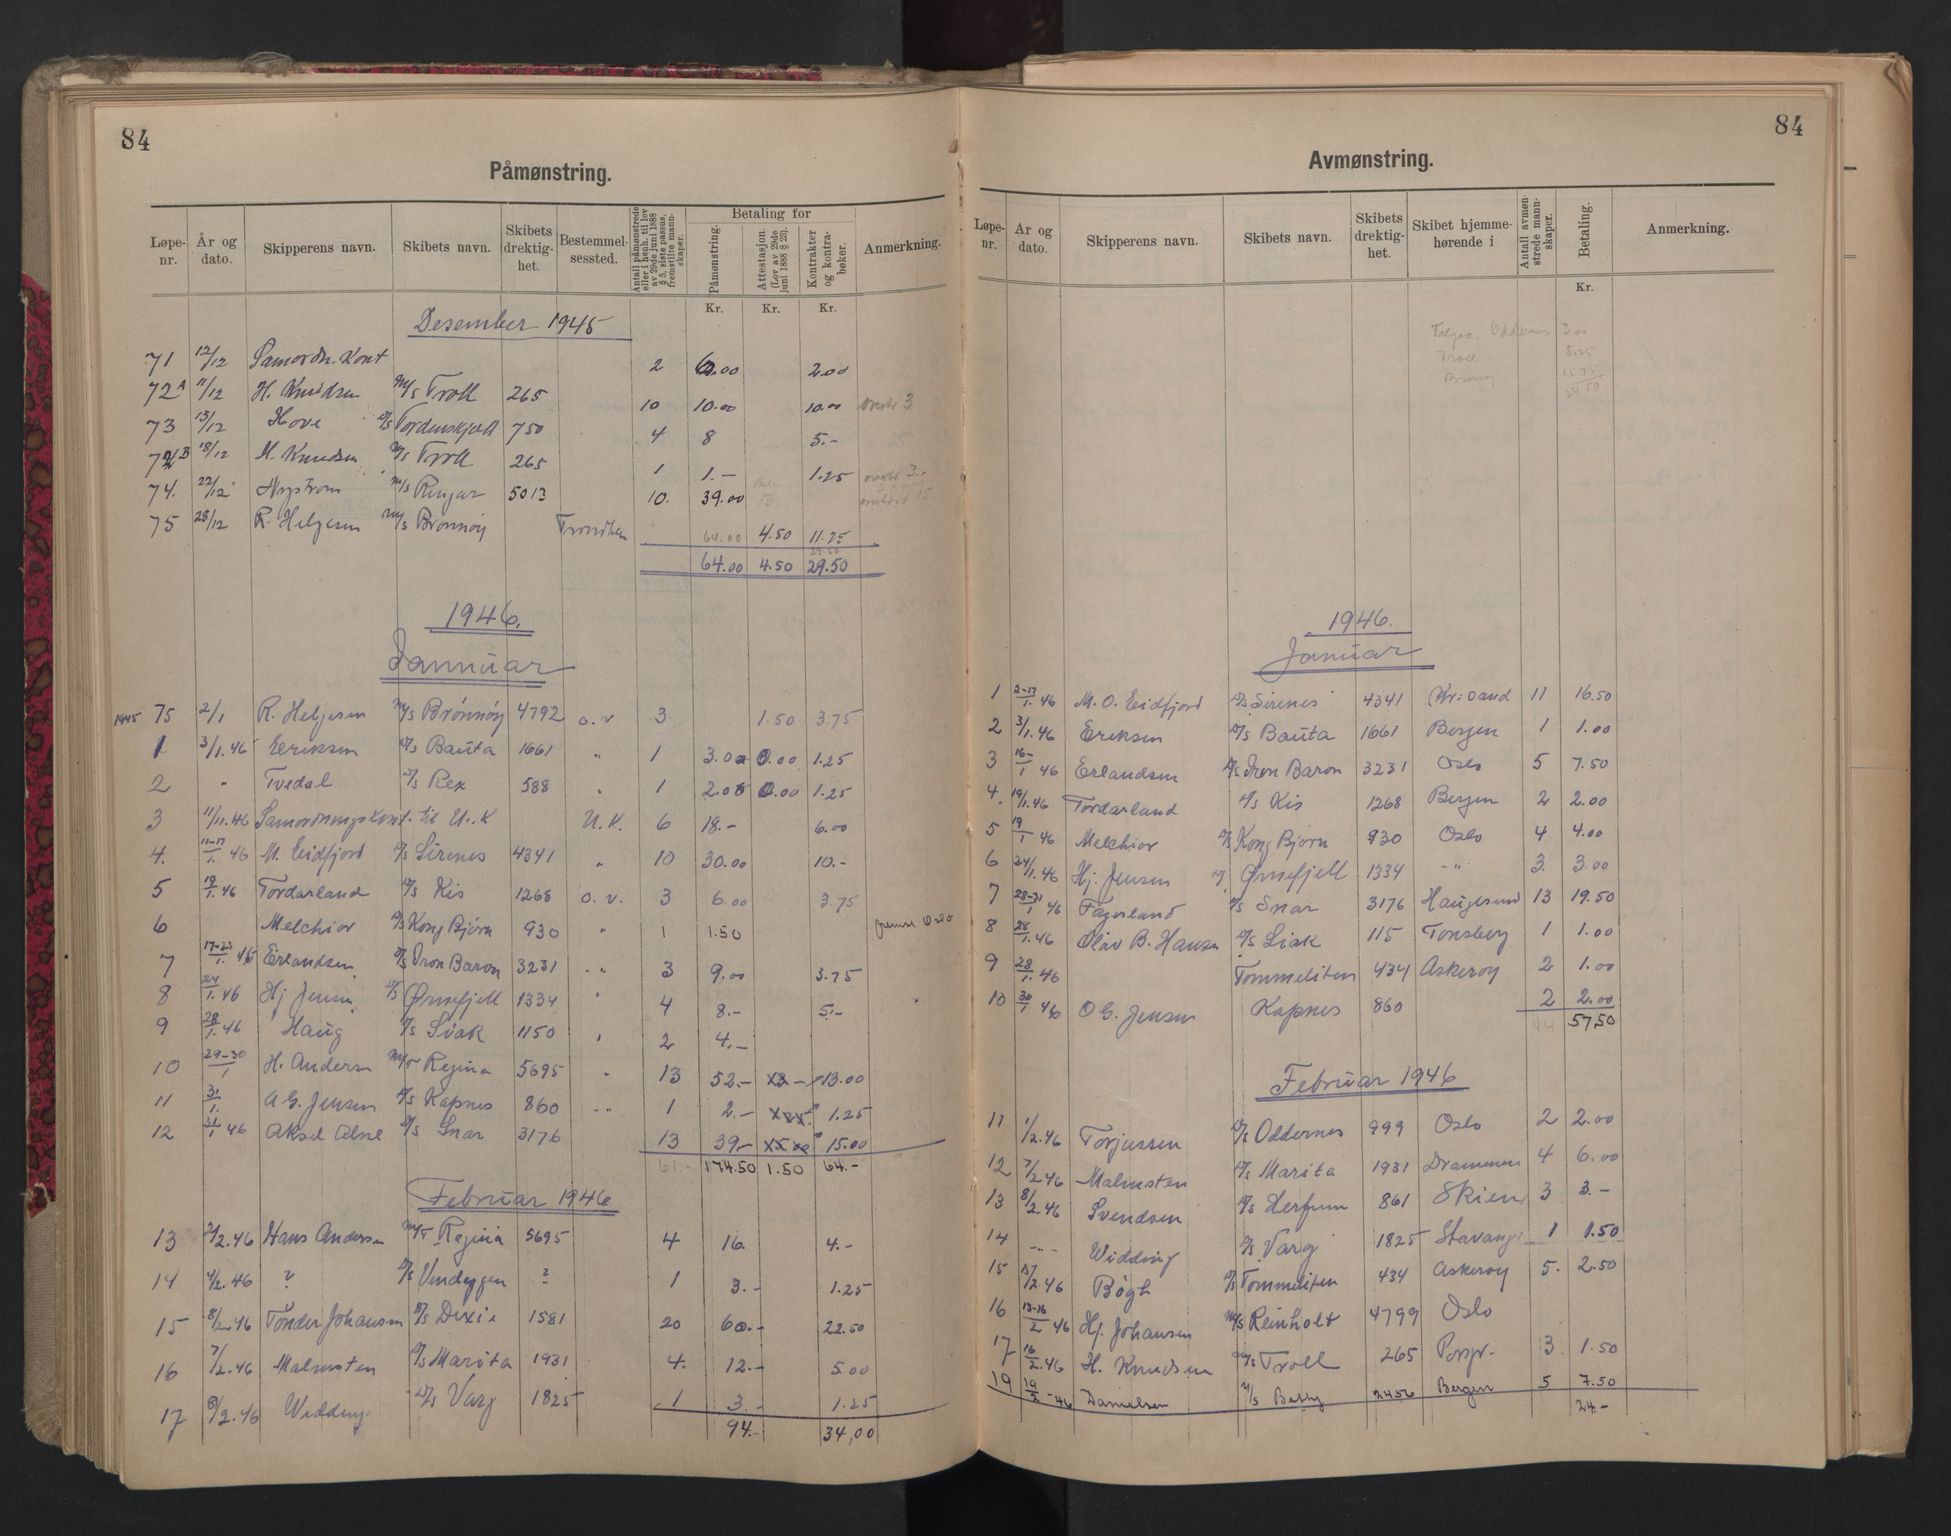 84
Påmønstring.
Løpe-nr. År og dato. Skipperens navn. Skibets navn. Skibets drektig-het. Bestemmel-sessted. Antall påmønstrede eller i henh. til lov av 29de juni 1888 § 5, siste passus, fremstilte mann-skaper. Betaling for Påmønstring. Attestasjon. (Lov av 29de juni 1888 § 23). Kontrakter og kontra-bøker. Anmerkning.
Kr. Kr. Kr.
Desember 1945
71 12/12 Samordn. Kont 2 6.00 2.00
72A 11/12 H. Knudsen M/s Troll 265 10 10.00 10.00 3
73 13/12 Hove D/s Tordenskjold 750 4 8 5.-
72B 18/12 M. Knudsen M/s Troll 265 1 1.- 1.25 3.-
74. 22/12 Nystrøm M/s Ringar 5013 10. 39.00 13. 15
75 28/12 R. Heljesen M/s Brønnøy Trondhem 64.00 4.50 11.25
29.50
64.00 4.50 29.50
1946.
Jannuar
1945 75 2/1 R. Heljesen M/s Brønnøy 4792 o.v 3 1.50 3.75
1 3/1.46 Eeriksen D/s Bauta 1661 " 1 3.00 0.00 1.25
2 " Tvedal D/s Rex 588 " 1 2.00 0.00 1.25
3 11/11.46 Samordningskont. til U.K U.K. 6 18.- 6.00
4. 11-17/1. 46 M. Eidfjord D/s Sirenes 4341 " 10 30.00 10.-
5 19/1.46 Tordarland D/s Kis 1268 o.v. 3 6.00 3.75
6 Melchior D/s Kong Bjørn 930 " 1 1.50 Oslo
7 17-23/1. 46 Erlandsen D/s Iron Baron 3231 " 3 9.00 3.75
8 24/1.46 Hj Jensen D/s Ørnefjell 1334 " 4 8.- 5.- "
9 28/1.46 Haug D/s Siak 1150 " 2 4.-
10 29-30/1 H. Andersn M/T Regina 5695 " 13 52.- 13.00
11 31/1. A G. Jensen D/s Kapnes 860 " 1 2.- 1.25
12 31/1 46 Aksel Alne D/s Snar 3176 13 39.- 15.00
61.- 174.50 1.50 64.-
Februar 1946
13 2/2.46 Hans Andersen M/T Regina 5695 4 16. 4.-
14 4/2.46 ? D/s Vindeggen ? 1 3.- 1.25
15 8/2.46 Tønder Johansen D/s Dixie 1581 20 60.- 22.50
16 7/2.46 Malmsten D/s Marita 1931 4. 12.- 5.00
17 8/2.46 Widding D/s Varg 1825 1 3.- 1.25
94.- 34,00
84
Avmønstring.
Løpe-nr. År og dato. Skipperens navn. Skibets navn. Skibets drektig-het. Skibet hjemme-hørende i Antall avmøn-strede mann-skaper. Betaling. Anmerkning.
Kr.
Oddernes 3.00
Troll 5.25
Brønnøy 15.75
24.50
1946.
Januar
1 2-17/1. 46 M. O. Eidfjord D/s Sirenes 4341 Kr:sand 11 16.50
2 3/1.46 Eriksen D/s Bauta 1661 Bergen 1 1.00
3 16-/1 46 Erlandsen D/s Iron Baron 3231 Oslo 5 7.50
4. 19/1.46 Tordarland D/s Kis 1268 Bergen 2 2.00
5 19/1 46 Melchior D/s Kong Bjørn 930 Oslo 4 4.00
6 24/1.46 Hj. Jensen D/ Ørnefjell 1334 -"- 3. 3.00
7 28-31/1 46 Fagerland D/s Snar 3176 Haugesund 13 19.50
8 28/1.46 Olav B. Hansen D/s Siak 115 Tønsberg 1 1.00
9 28/1.46 Tommeliten 434 Askerøy 2 1.00
10 30/1 46 O G. Jensen Kapnes 860 2 2.00
44 57,50
Februar 1946
11 1/2.46 Torjussen D/s Oddernes 999 Oslo 2 2.00
12 7/2.46 Malmsten D/s Marita 1931 Drammen 4 6.00
13 8/2.46 Svendsen D/s Herfinn 861 Skien 3 3.-
14 -"- Widding D/s Varg 1825 Stavang 1 1.50
15 13/2.46 Bøgh D/s Tommeliten 434 Askerøy 5. 2.50
16 13-16/2 46 Hj. Johansen M/s Reinholt 4799 Oslo
17 16/2.46 H. Knudsen M/s Troll 265 Porsgr. 3. 1.50
19 19/2-46 Danielsen D/s Betty 2456 Bergen 5 7.50
24.-